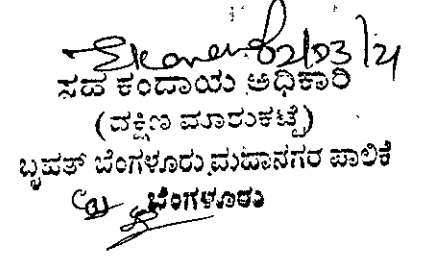 02/03/21
ಸಹ ಕಂದಾಯ ಅಧಿಕಾರಿ
(ದಕ್ಷಿಣ ಮಾರುಕಟ್ಟೆ)
ಬೃಹತ್ ಬೆಂಗಳೂರು ಮಹಾನಗರ ಪಾಲಿಕೆ
ಬೆಂಗಳೂರು